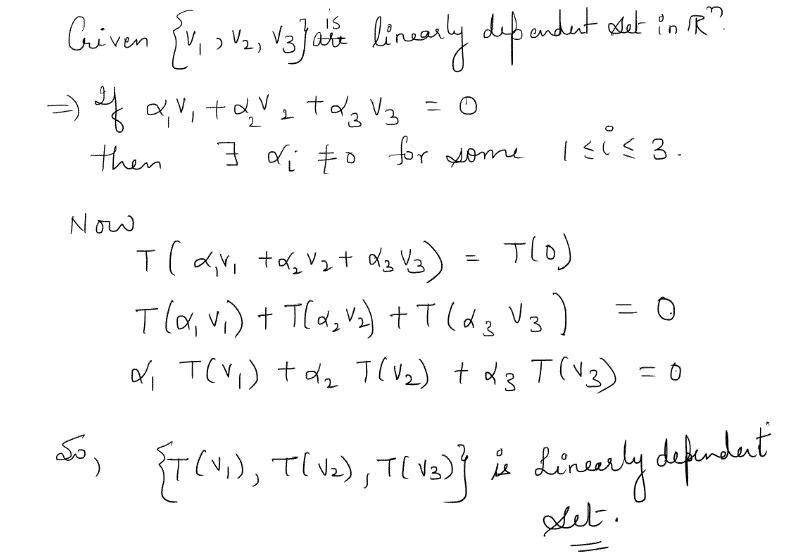 Given {v₁, v₂, v₃} is linearly dependent set in ℝⁿ.
⇒ If α₁v₁ + α₂v₂ + α₃v₃ = 0
then ∃ αᵢ ≠ 0 for some 1 ≤ i ≤ 3.
Now
T(α₁v₁ + α₂v₂ + α₃v₃) = T(0)
T(α₁v₁) + T(α₂v₂) + T(α₃v₃) = 0
α₁ T(v₁) + α₂ T(v₂) + α₃ T(v₃) = 0
So, {T(v₁), T(v₂), T(v₃)} is Linearly dependent
set.